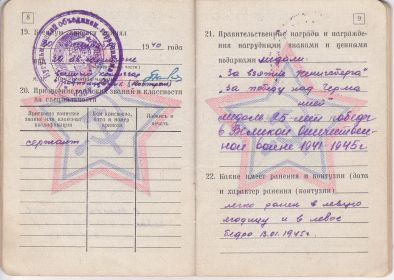 8
19.
1940 года
20. Присвоение воинских званий и классности
по специальности
Присвоено воинское
звание или воинская
квалификация
Кем присвоено,
дата и номер
приказа
Подпись и
печать
сержант
9
21. Правительственные награды и награждения
нагрудными знаками и ценными
подарками медали
„За взятие Кенигсберга“
„За победу над Герма
нией“
медаль 25 лет победы
в Великой Отечествен-
ной войне 1941-1945г.
22. Какие имеет ранения и контузии (дата
и характер ранения (контузии)
легко ранен в левую
ягодицу и в левое
бедро 13.01.1945г.